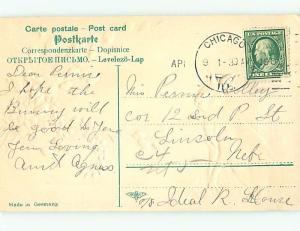 Carte postale - Post card
Postkarte
Correspondenzkarte - Dopisnice
ОТКРЫТОЕ ПИСЬМО. - Levelező-Lap
CHICAGO
API
9 1-30 A
Dear
I hope the
Bunny will
be good to
Your Loving
Aunt Agnes
Miss
Cor 12 and P St
Lincoln
Nebr
c/o Ideal R. House
Made in Germany